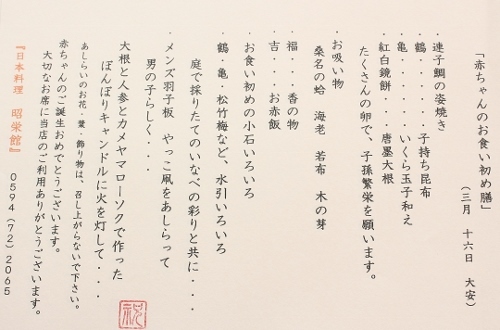 「赤ちゃんのお食い初め膳」
（三月 十六日 大安）
・連子鯛の姿焼き
鶴・・・・・・子持ち昆布
亀・・・・・・いくら玉子和え
・紅白鏡餅・・・唐墨大根
たくさんの卵で、子孫繁栄を願います。
・お吸い物
桑名の蛤 海老 若布 木の芽
・福・・・香の物
・吉・・・お赤飯
・お食い初めの小石いろいろ
・鶴・亀・松竹梅など、水引いろいろ
庭で採りたてのいなべの彩りと共に・・・
・メンズ羽子板 やっこ凧をあしらって
男の子らしく・・・
大根と人参とカメヤマローソクで作った
ぼんぼりキャンドルに火を灯して・・・
あしらいのお花・葉・飾り物は、召し上がらないで下さい。
赤ちゃんのご誕生おめでとうございます。
大切なお席に当店のご利用ありがとうございます。
『日本料理 昭栄館』 0594（72）2065